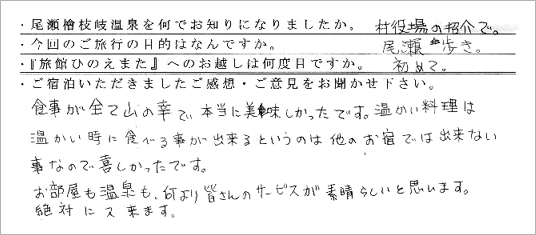 ・尾瀬檜枝岐温泉を何でお知りになりましたか。 村役場の紹介で。
・今回のご旅行の目的はなんですか。 尾瀬歩き。
・『旅館ひのえまた』へのお越しは何度目ですか。 初めて。
・ご宿泊いただきましたご感想・ご意見をお聞かせ下さい。
食事が全て山の幸で、本当に美味しかったです。温かい料理は
温かい時に食べる事が出来るというのは他のお宿では出来ない
事なので喜しかったです。
お部屋も温泉も、何より皆さんのサービスが素晴らしいと思います。
絶対に又来ます。